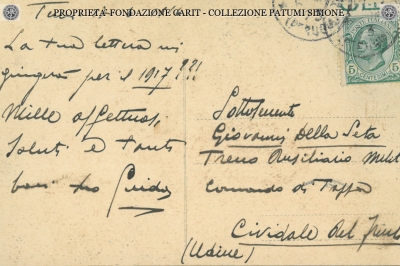 PROPRIETÀ FONDAZIONE GARIT - COLLEZIONE PATUMI SIMONE
La tua lettera mi
giungerà per il 1917?!!
Mille affettuosi
Saluti e tanti
baci tuo Guido
Sottotenente
Giovanni Della Seta
Treno Ausiliario
Comando di Tappa
Cividale del Friuli
(Udine)